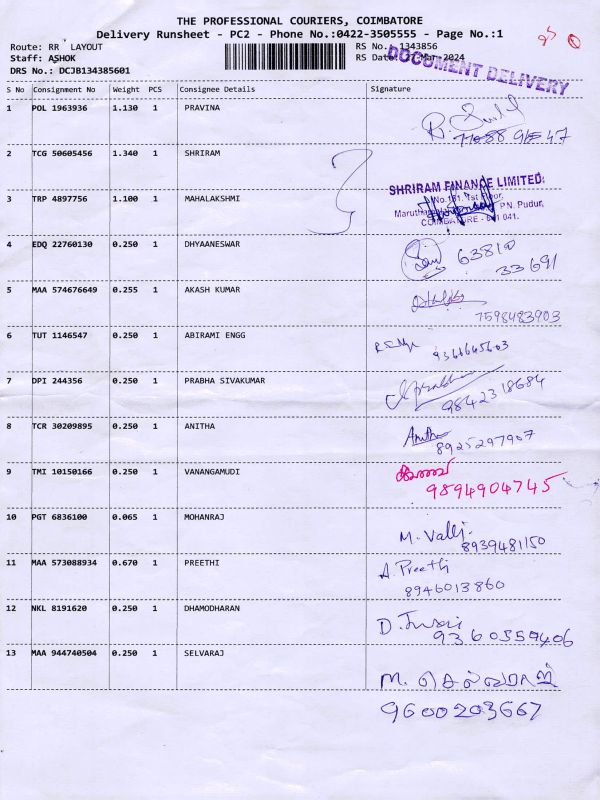 THE PROFESSIONAL COURIERS, COIMBATORE
Delivery Runsheet - PC2 - Phone No.:0422-3505555 - Page No.:1
Route: RR LAYOUT
RS No. 1343856
Staff: ASHOK
RS Date Mar-2024
DRS No.: DCJB134385601
DOCUMENT DELIVERY
S No Consignment No Weight PCS Consignee Details Signature
1 POL 1963936 1.130 1 PRAVINA
2 TCG 50605456 1.340 1 SHRIRAM
SHRIRAM FINANCE LIMITED
No.181, 1st Floor,
P.N. Pudur,
COIMBATORE - 641 041.
3 TRP 4897756 1.100 1 MAHALAKSHMI
4 EDQ 22760130 0.250 1 DHYAANESWAR
63810
33691
5 MAA 574676649 0.255 1 AKASH KUMAR
7598483903
6 TUT 1146547 0.250 1 ABIRAMI ENGG
9361645603
7 DPI 244356 0.250 1 PRABHA SIVAKUMAR
9842318684
8 TCR 30209895 0.250 1 ANITHA
Anitha
8925297907
9 TMI 10150166 0.250 1 VANANGAMUDI
9894904745
10 PGT 6836100 0.065 1 MOHANRAJ
M. Valli
8939481150
11 MAA 573088934 0.670 1 PREETHI
A. Preethi
8946013860
12 NKL 8191620 0.250 1 DHAMODHARAN
9360559406
13 MAA 944740504 0.250 1 SELVARAJ
M. செல்வராஜ்
9600203667